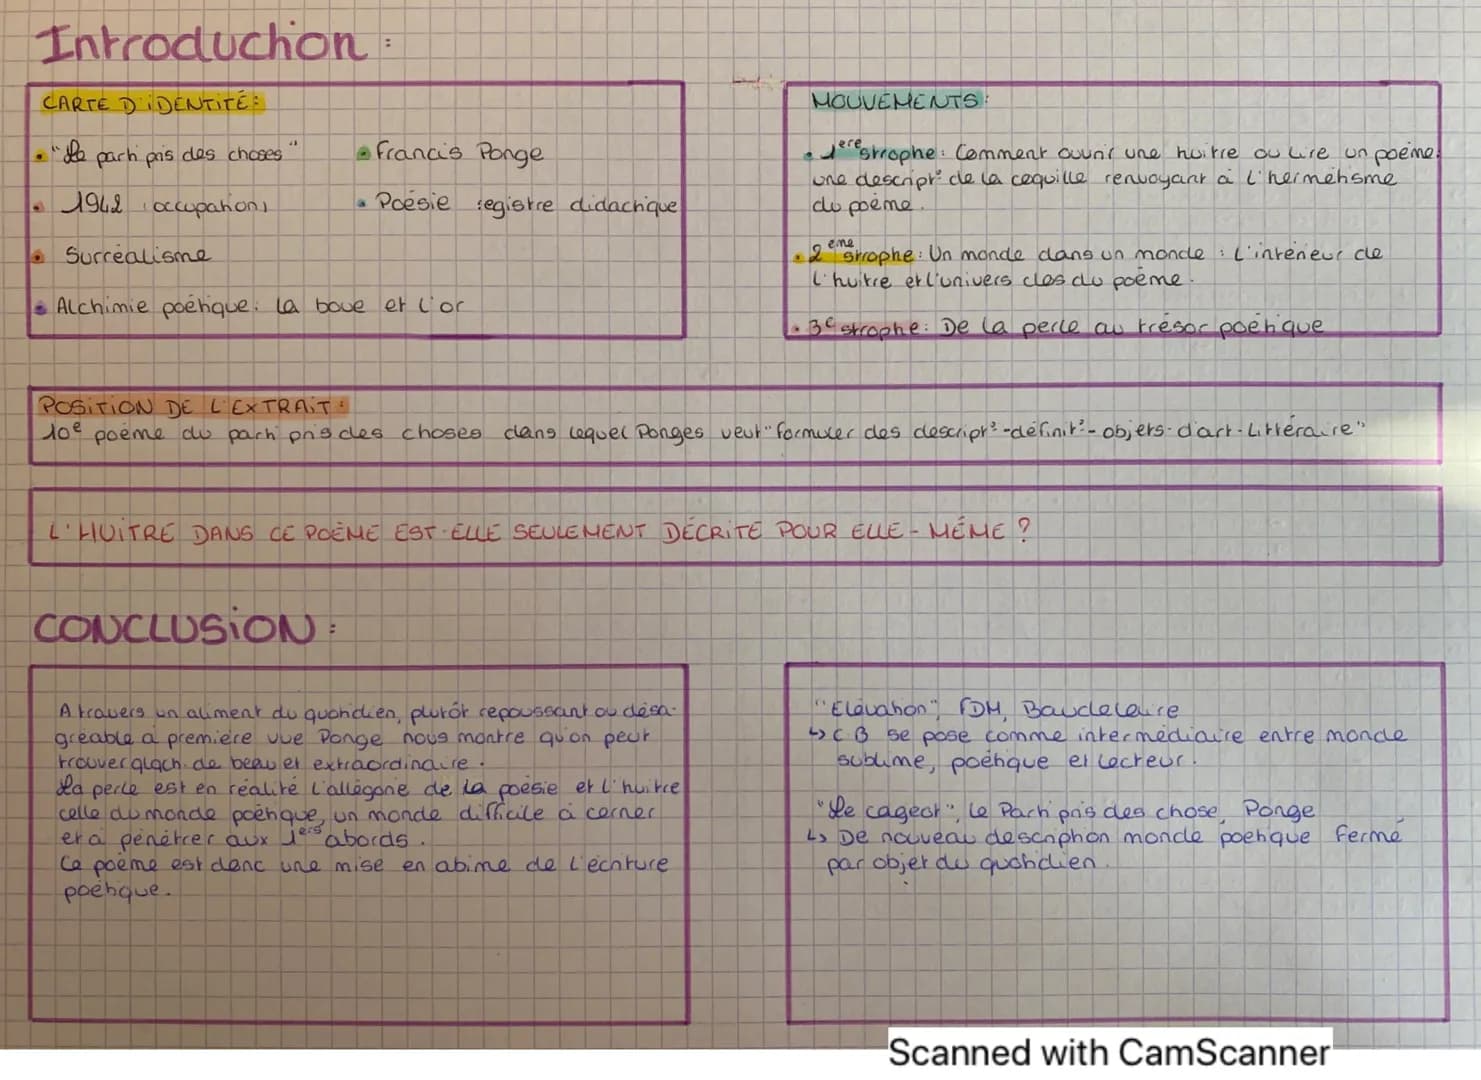 Introduction :
CARTE D'IDENTITÉ:
• "Le parti pris des choses"
• Francis Ponge
• 1942 (occupation)
• Poésie registre didactique
• Surréalisme
• Alchimie poétique: la boue et l'or
MOUVEMENTS:
• 1ere strophe: Comment ouvrir une huître ou lire un poème:
une descript° de la coquille renvoyant à l'hermétisme
du poème.
• 2eme strophe: Un monde dans un monde : l'intérieur de
l'huître et l'univers clos du poème.
• 3e strophe: De la perle au trésor poétique
POSITION DE L'EXTRAIT:
10e poème du parti pris des choses dans lequel Ponges veut "formuler des descript°-définit°-objets-d'art-littéraire"
L'HUÎTRE DANS CE POÈME EST-ELLE SEULEMENT DÉCRITE POUR ELLE-MÊME ?
CONCLUSION :
A travers un aliment du quotidien, plutôt repoussant ou désa-
gréable à première vue Ponge nous montre qu'on peut
trouver qlqch. de beau et extraordinaire.
La perle est en réalité l'allégorie de la poésie et l'huître
celle du monde poétique, un monde difficile à cerner
et à pénétrer aux 1ers abords.
Ce poème est donc une mise en abime de l'écriture
poétique.
"Elévation", FDM, Baudeleaire
↳ C.B se pose comme intermédiaire entre monde
sublime, poétique et lecteur.
"Le cageot", Le Parti pris des chose, Ponge
↳ De nouveau description monde poétique fermé
par objet du quotidien.
Scanned with CamScanner